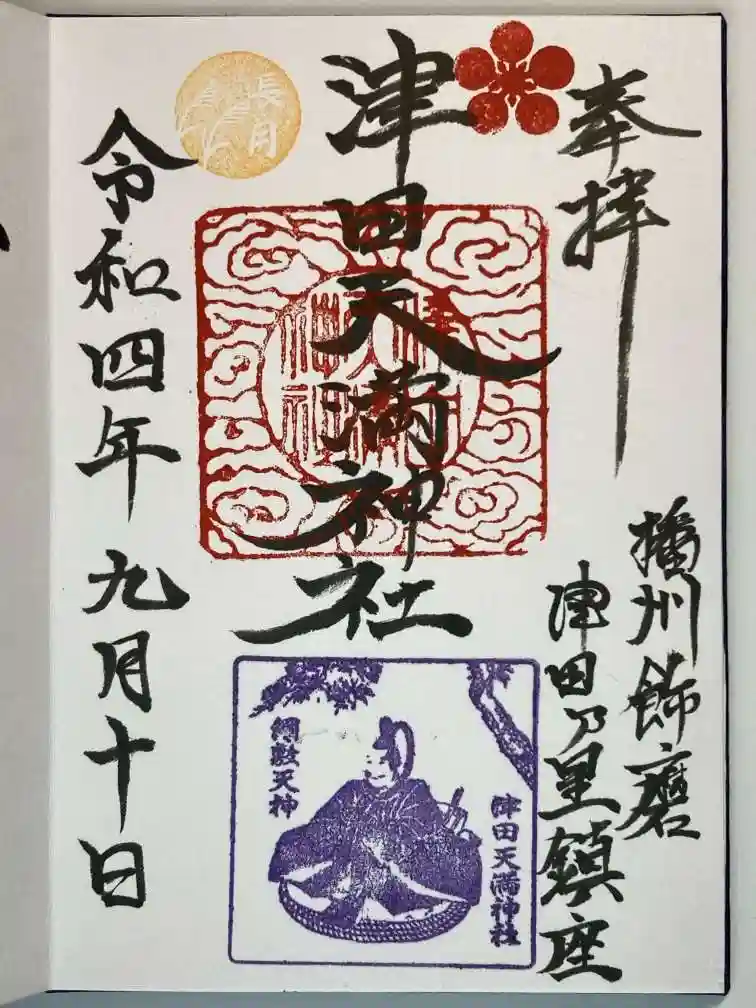 奉拝
播州飾磨
津田乃里鎮座
津田天満神社
長月
令和四年九月十日
綱敷天神
津田天満神社